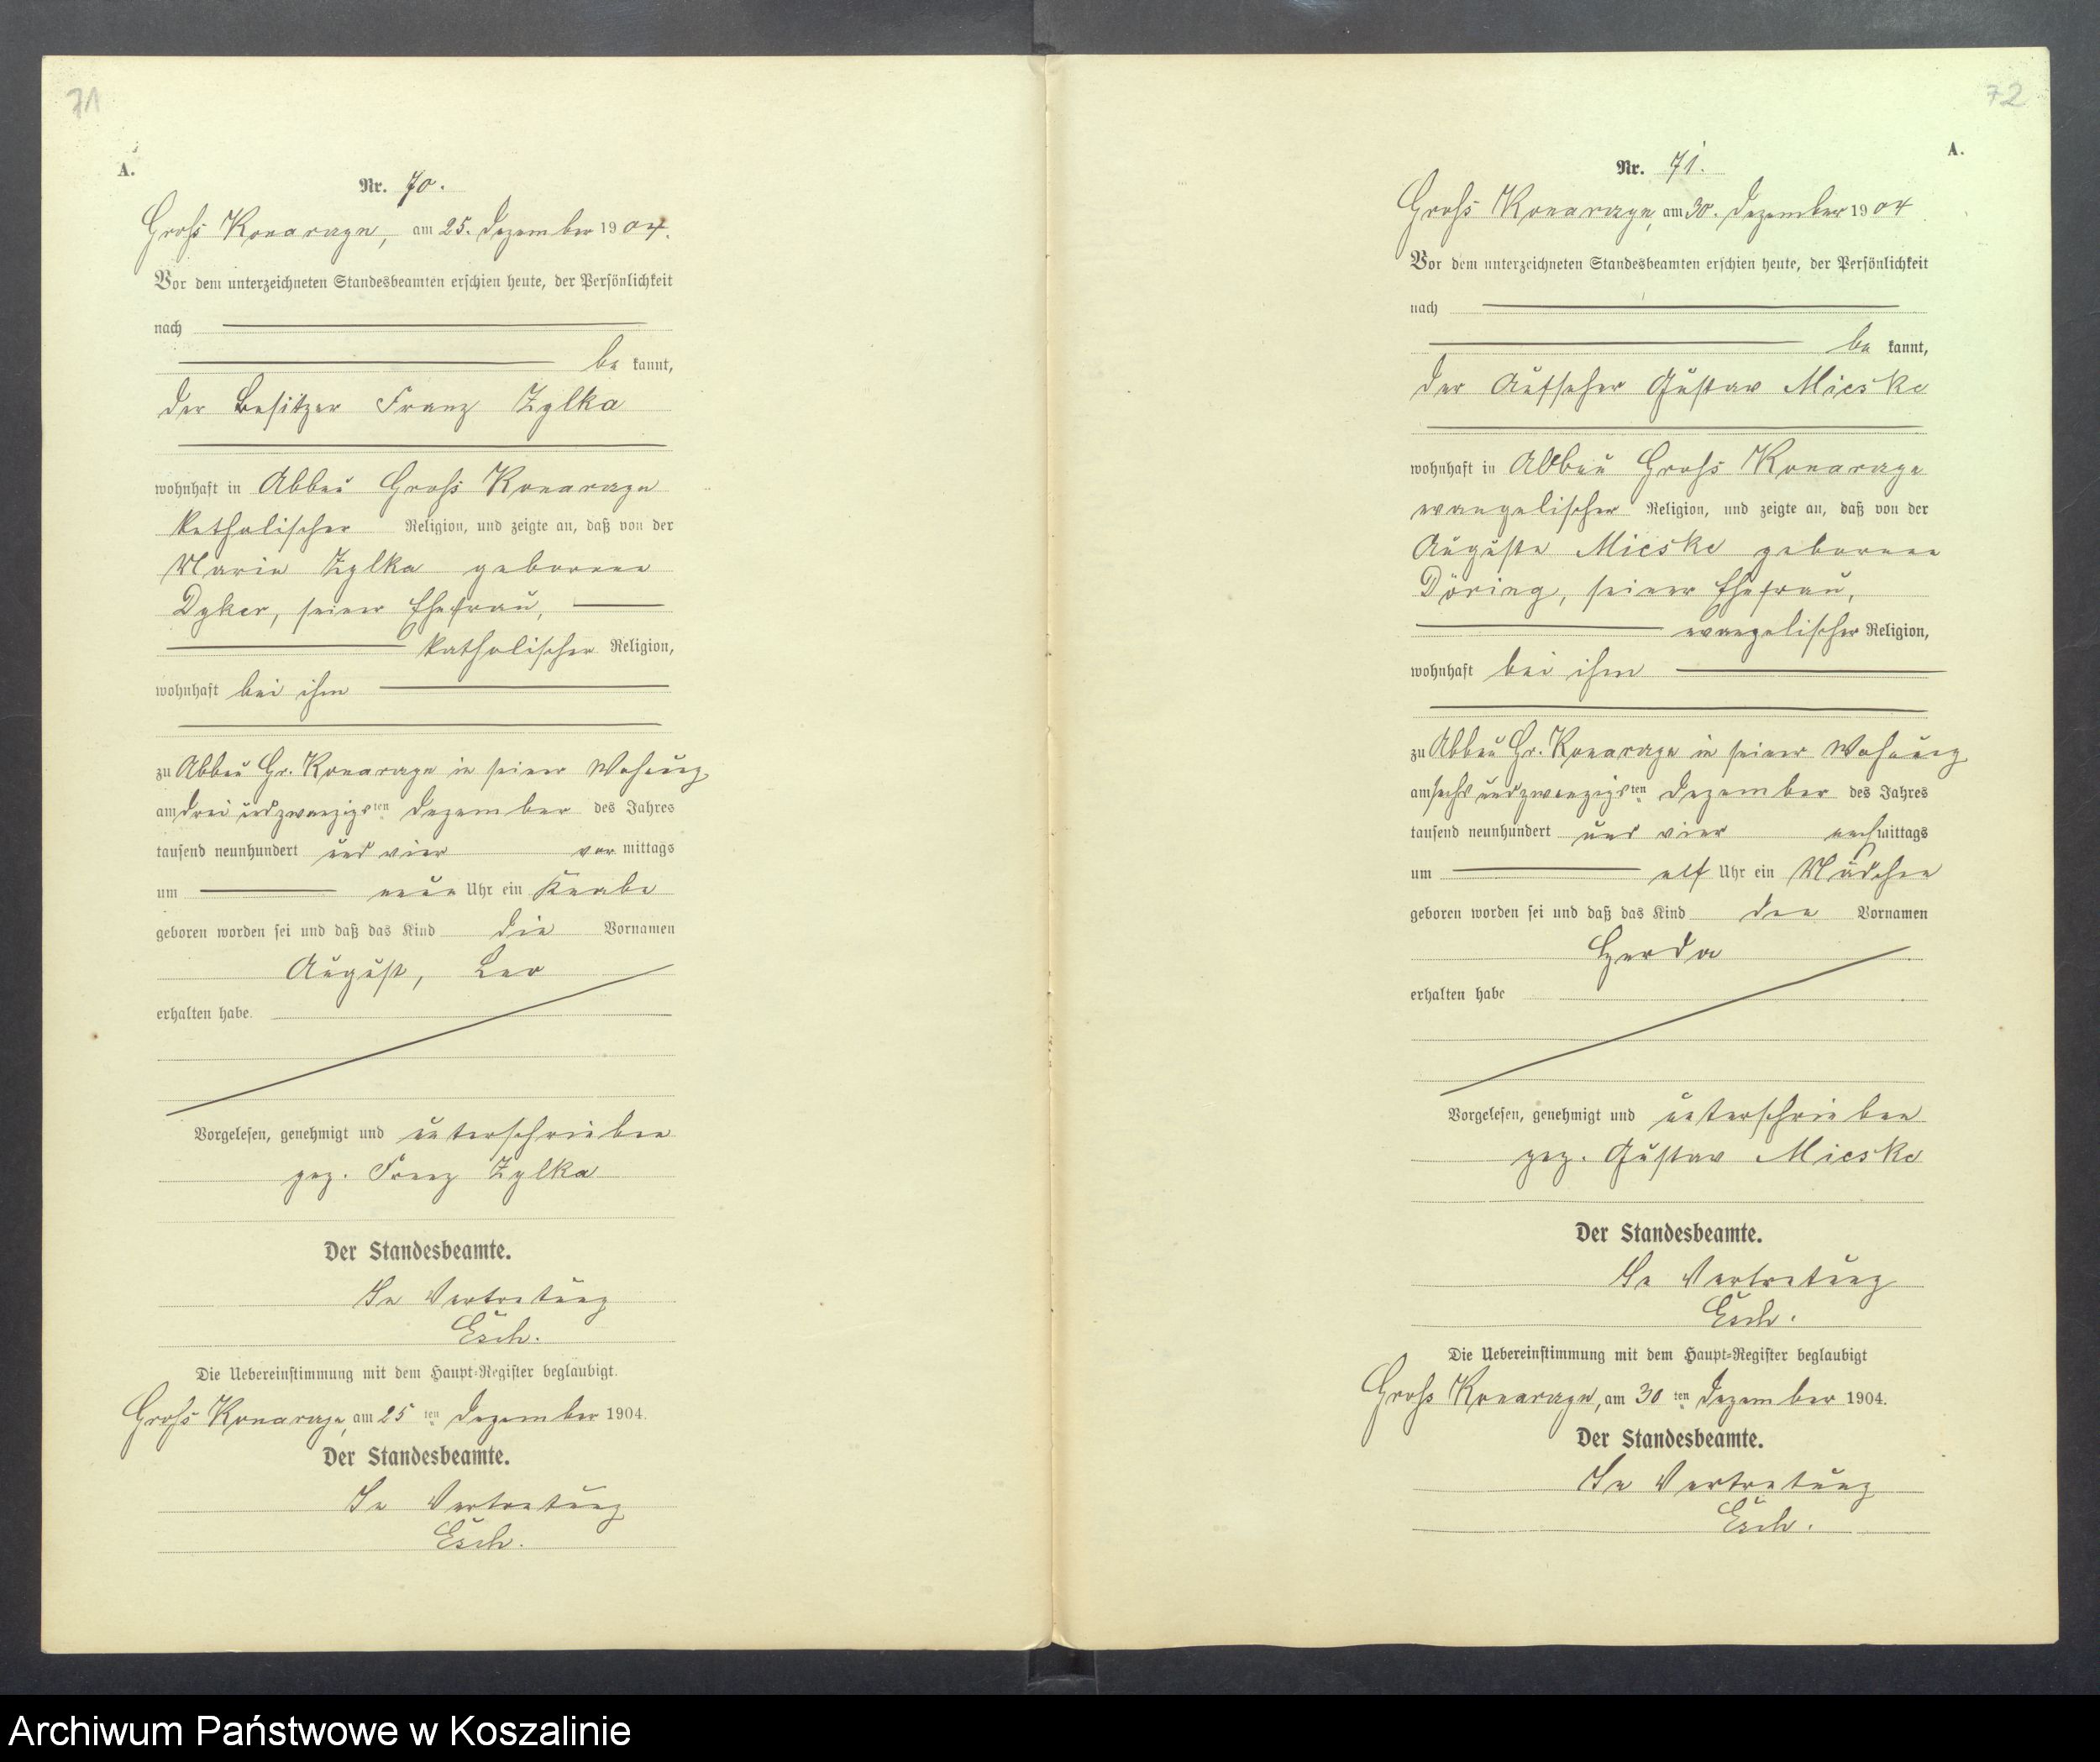 71
A.
Nr. 70.
Groß Konarzyn, am 25. Dezember 1904.
Vor dem unterzeichneten Standesbeamten erschien heute, der Persönlichkeit
nach
be kannt,
der Besitzer Franz Zylka
wohnhaft in Abbau Groß Konarzyn
katholischer Religion, und zeigte an, daß von der
Marie Zylka geborene
Dyker, seiner Ehefrau,
katholischer Religion,
wohnhaft bei ihm
zu Abbau Gr. Konarzyn in seiner Wohnung
am drei und zwanzigsten Dezember des Jahres
tausend neunhundert und vier vor mittags
um neun Uhr ein Knabe
geboren worden sei und daß das Kind die Vornamen
August, Leo
erhalten habe.
Vorgelesen, genehmigt und unterschrieben
gez. Franz Zylka
Der Standesbeamte.
In Vertretung
Esch.
Die Uebereinstimmung mit dem Haupt-Register beglaubigt.
Groß Konarzyn, am 25 ten Dezember 1904.
Der Standesbeamte.
In Vertretung
Esch.
72
A.
Nr. 71.
Groß Konarzyn, am 30. Dezember 1904
Vor dem unterzeichneten Standesbeamten erschien heute, der Persönlichkeit
nach
be kannt,
der Aufseher Gustav Mieske
wohnhaft in Abbau Groß Konarzyn
evangelischer Religion, und zeigte an, daß von der
Auguste Mieske geborene
Döring, seiner Ehefrau,
evangelischer Religion,
wohnhaft bei ihm
zu Abbau Gr. Konarzyn in seiner Wohnung
am sechs und zwanzigsten Dezember des Jahres
tausend neunhundert und vier nach mittags
um elf Uhr ein Mädchen
geboren worden sei und daß das Kind den Vornamen
Herda
erhalten habe
Vorgelesen, genehmigt und unterschrieben
gez. Gustav Mieske
Der Standesbeamte.
In Vertretung
Esch.
Die Uebereinstimmung mit dem Haupt-Register beglaubigt
Groß Konarzyn, am 30 ten Dezember 1904.
Der Standesbeamte.
In Vertretung
Esch.
Archiwum Państwowe w Koszalinie